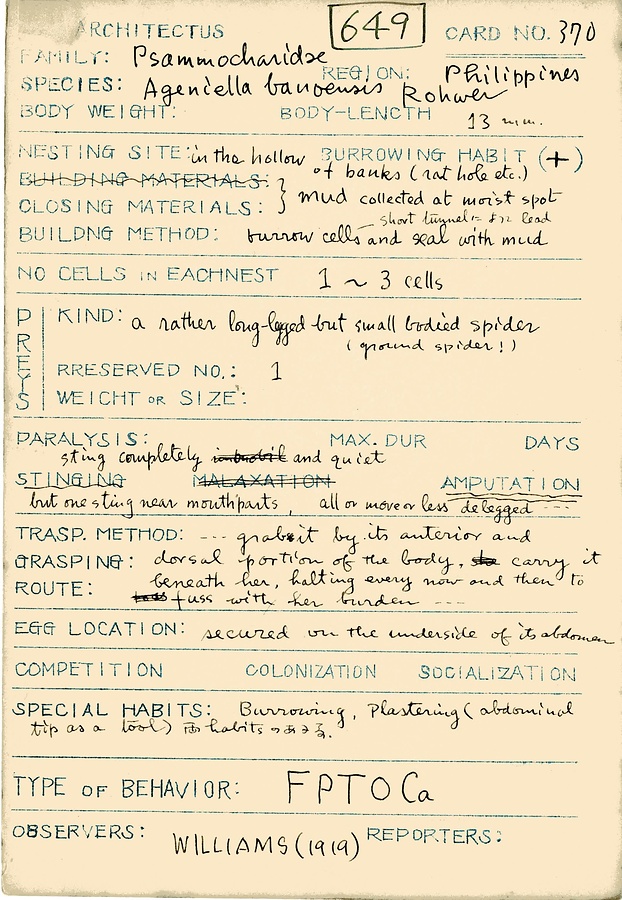 649
ARCHITECTUS CARD NO. 370
FAMILY: Psammocharidae
REGION: Philippines
SPECIES: Ageniella banoensis Rohwer
BODY WEIGHT: BODY-LENGTH 13 mm.
NESTING SITE: in the hollow BURROWING HABIT (+)
of banks (rat hole etc.)
BUILDING MATERIALS:
CLOSING MATERIALS: } mud collected at moist spot
short tunnel lead
BUILDNG METHOD: burrow cells and seal with mud
NO CELLS IN EACHNEST 1 ~ 3 cells
PREYS
KIND: a rather long-legged but small bodied spider
(ground spider!)
RRESERVED NO.: 1
WEIGHT OR SIZE:
PARALYSIS: MAX. DUR DAYS
sting completely and quiet
STINGING MALAXATION AMPUTATION
but one sting near mouthparts, all or more or less delegged ---
TRASP. METHOD: --- grabs it by its anterior and
GRASPING: dorsal portion of the body, she carry it
ROUTE: beneath her, halting every now and then to
fuss with her burden ---
EGG LOCATION: secured on the underside of its abdomen
COMPETITION COLONIZATION SOCIALIZATION
SPECIAL HABITS: Burrowing, Plastering (abdominal
tip as a tool) 両 habits のある.
TYPE OF BEHAVIOR: FPTOCa
OBSERVERS: WILLIAMS (1919) REPORTERS: